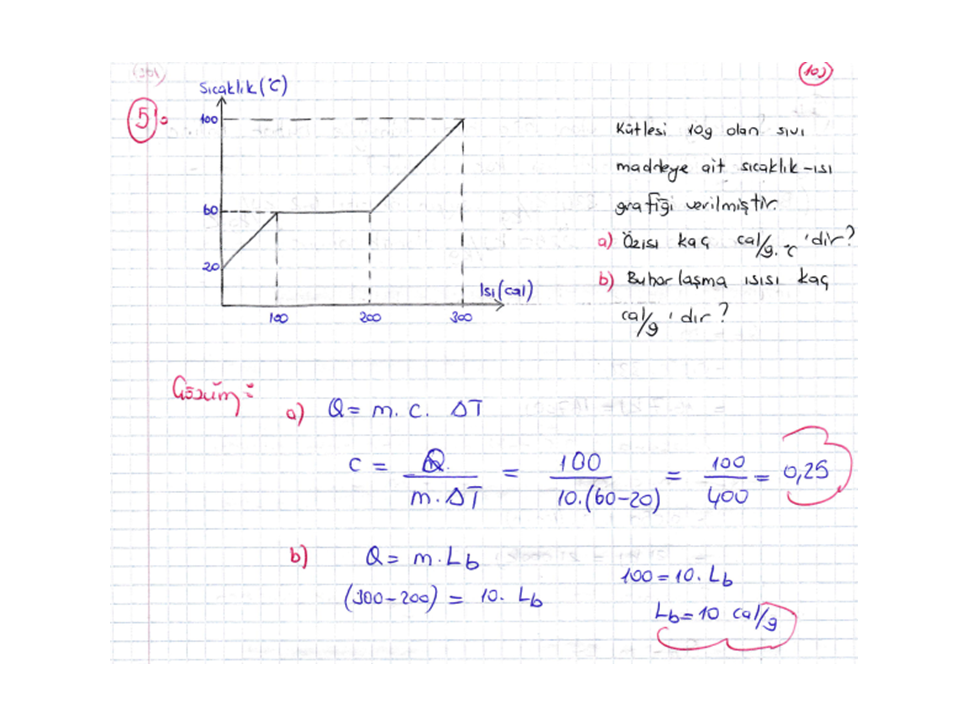 (10)
Sıcaklık (°C)
5:
100
60
20
100
200
300
Isı (cal)
Kütlesi 10g olan sıvı
maddeye ait sıcaklık-ısı
grafiği verilmiştir.
a) Özısı kaç cal/g.°C 'dir?
b) Buharlaşma ısısı kaç
cal/g 'dır?
Çözüm:
a) Q = m. c. ΔT
c = Q / m.ΔT = 100 / 10.(60-20) = 100 / 400 = 0,25
b) Q = m.Lb
(300-200) = 10. Lb
100 = 10. Lb
Lb = 10 cal/g